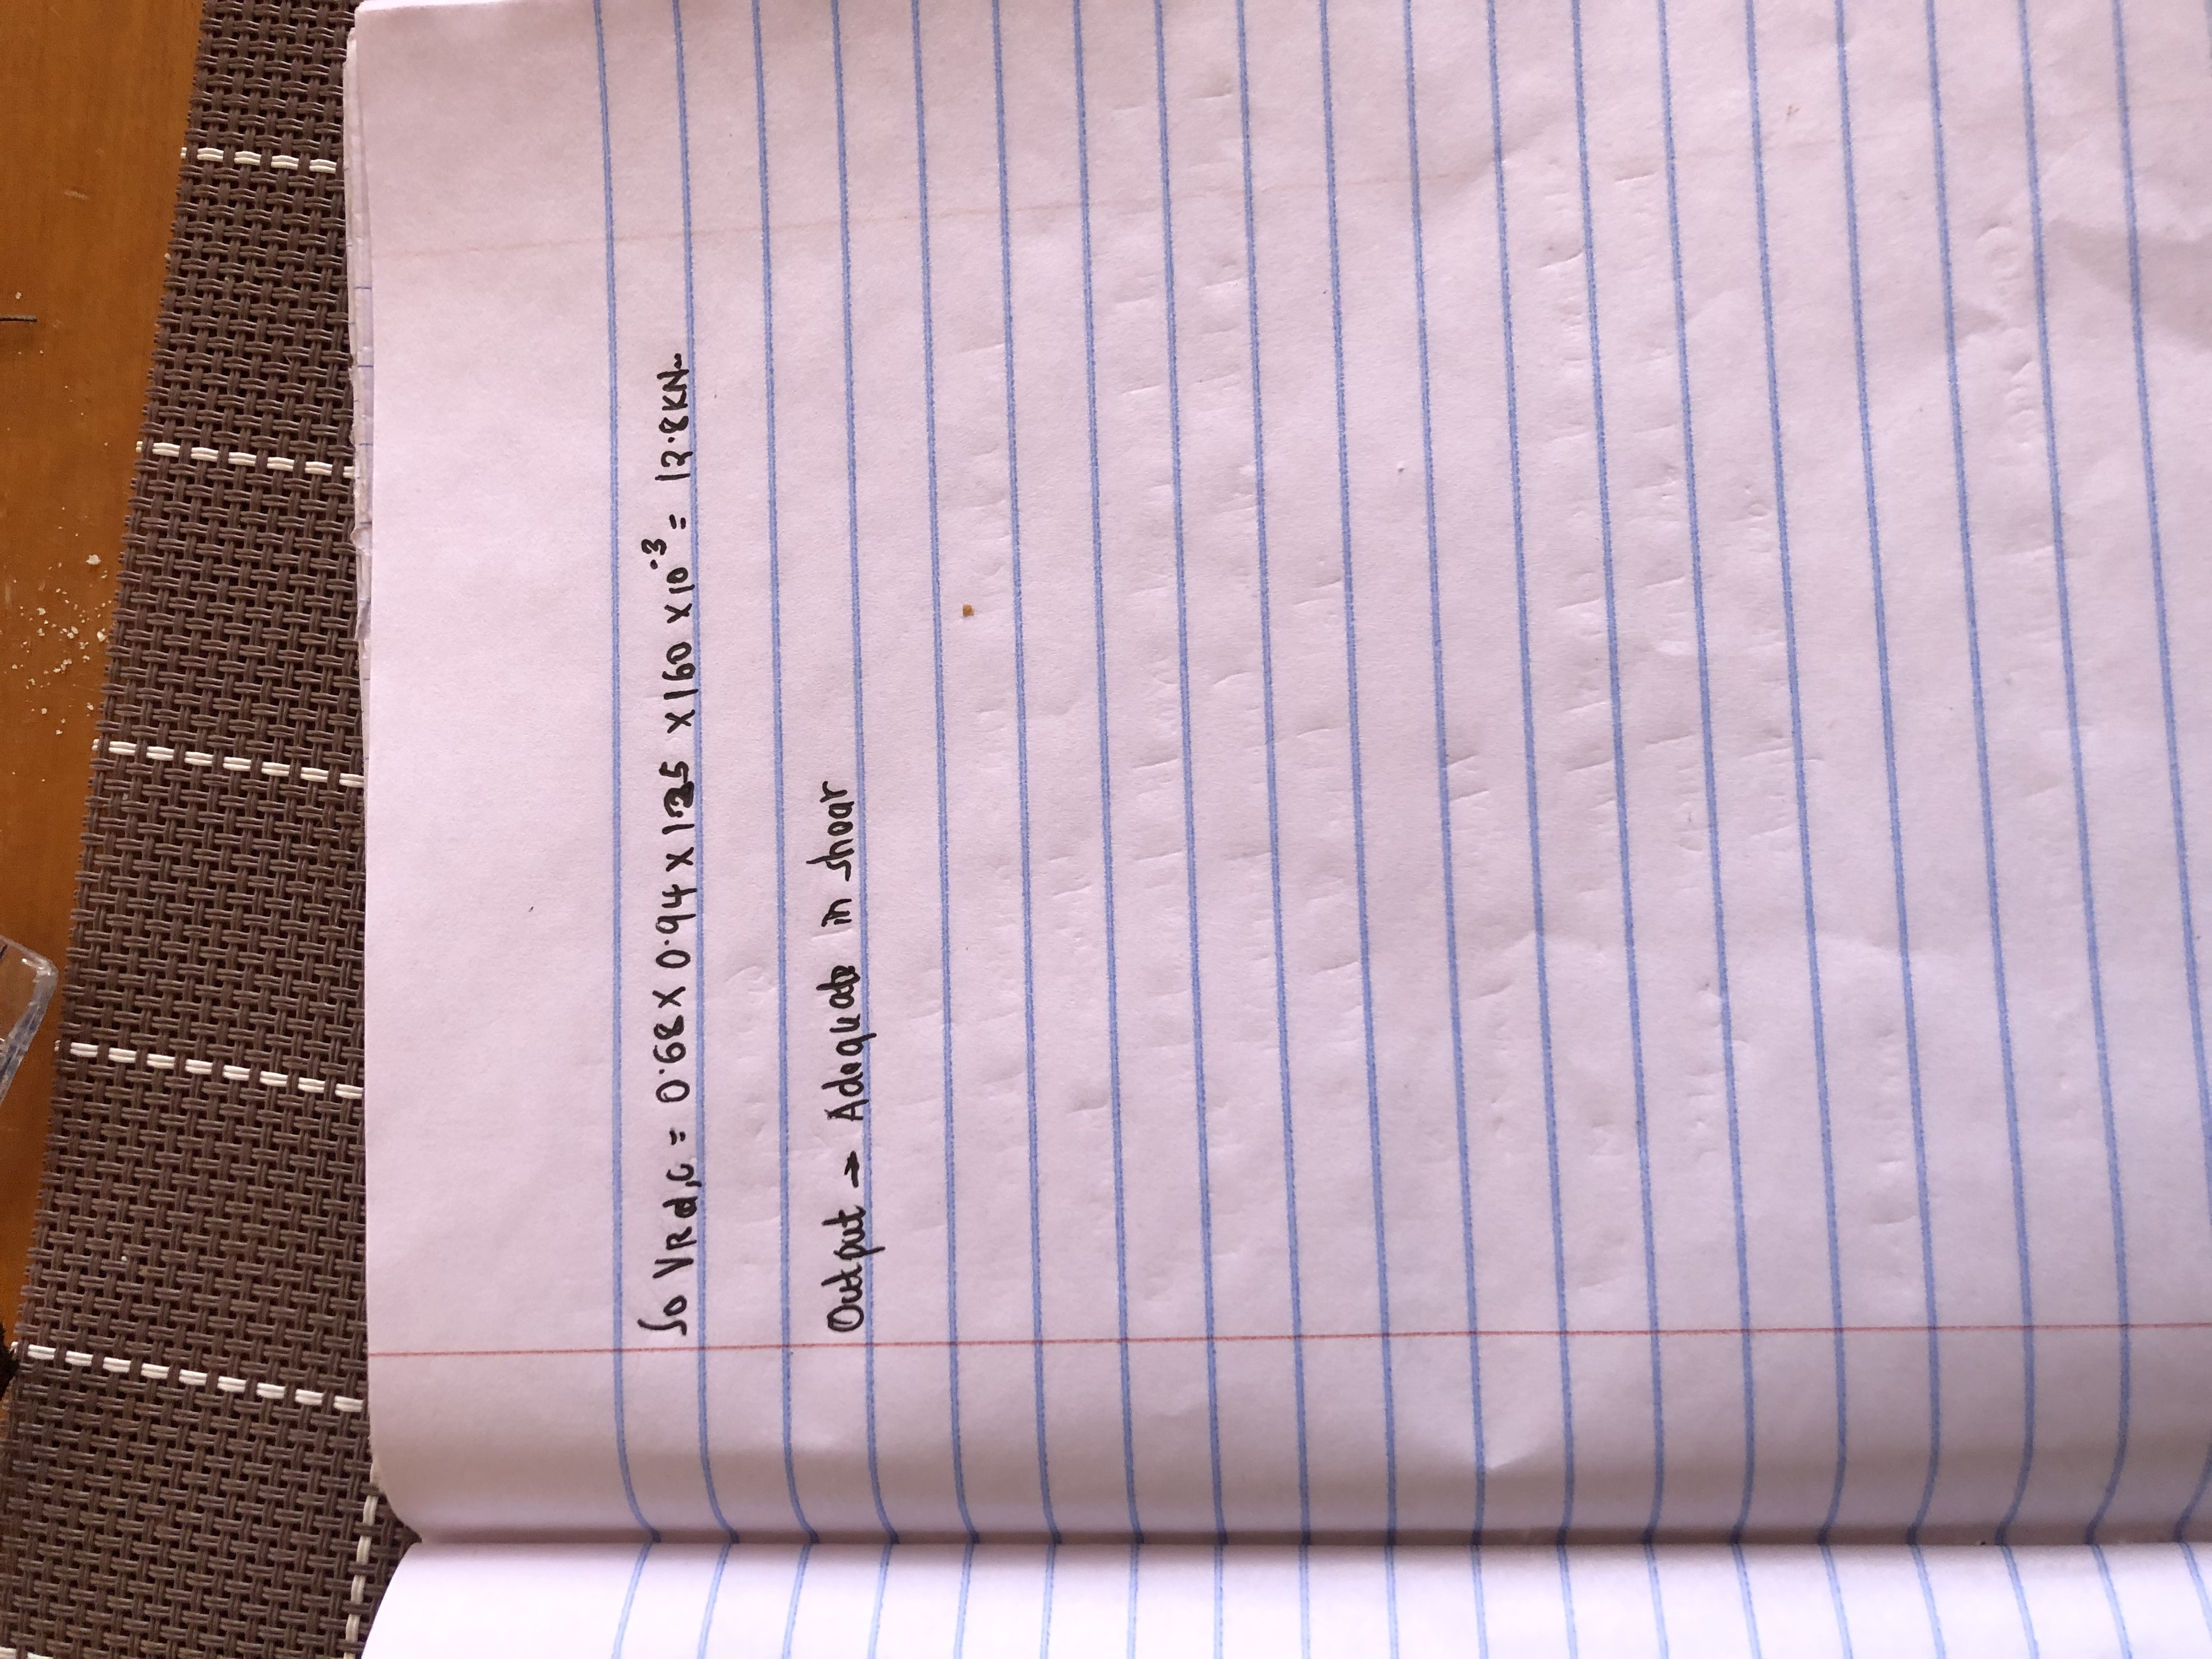 So VRd,c = 0.68 x 0.94 x 125 x 160 x 10⁻³ = 12.8KN
Output → Adequate in shear